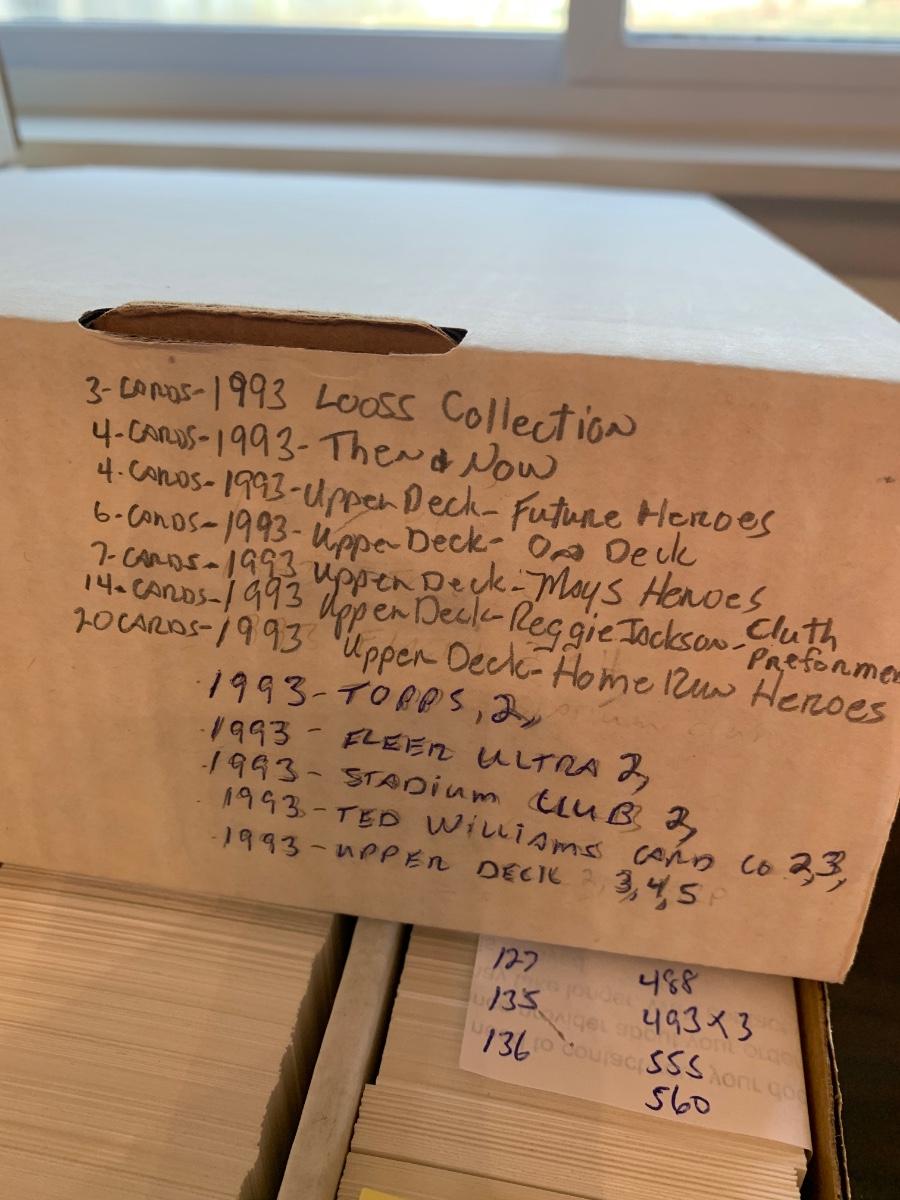 3-CARDS-1993 LOOSS Collection
4-CARDS-1993-Then & Now
4-CARDS-1993-Upper Deck-Future Heroes
6-CARDS-1993-Upper Deck- On Deck
7-CARDS-1993 Upper Deck-Mays Heroes
14-CARDS-1993 Upper Deck-Reggie Jackson-Cluth Preformer
20 CARDS-1993 Upper Deck-Home Run Heroes
1993-TOPPS, 2,
1993-FLEER ULTRA 2,
1993-STADIUM CLUB 2,
1993-TED WILLIAMS CARD CO 2,3,
1993-UPPER DECK 2, 3,4,5
127 488
135 493x3
136 555
560